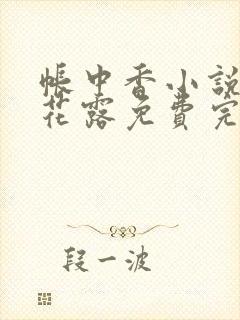 帐中香小說
花露免費完
段一波